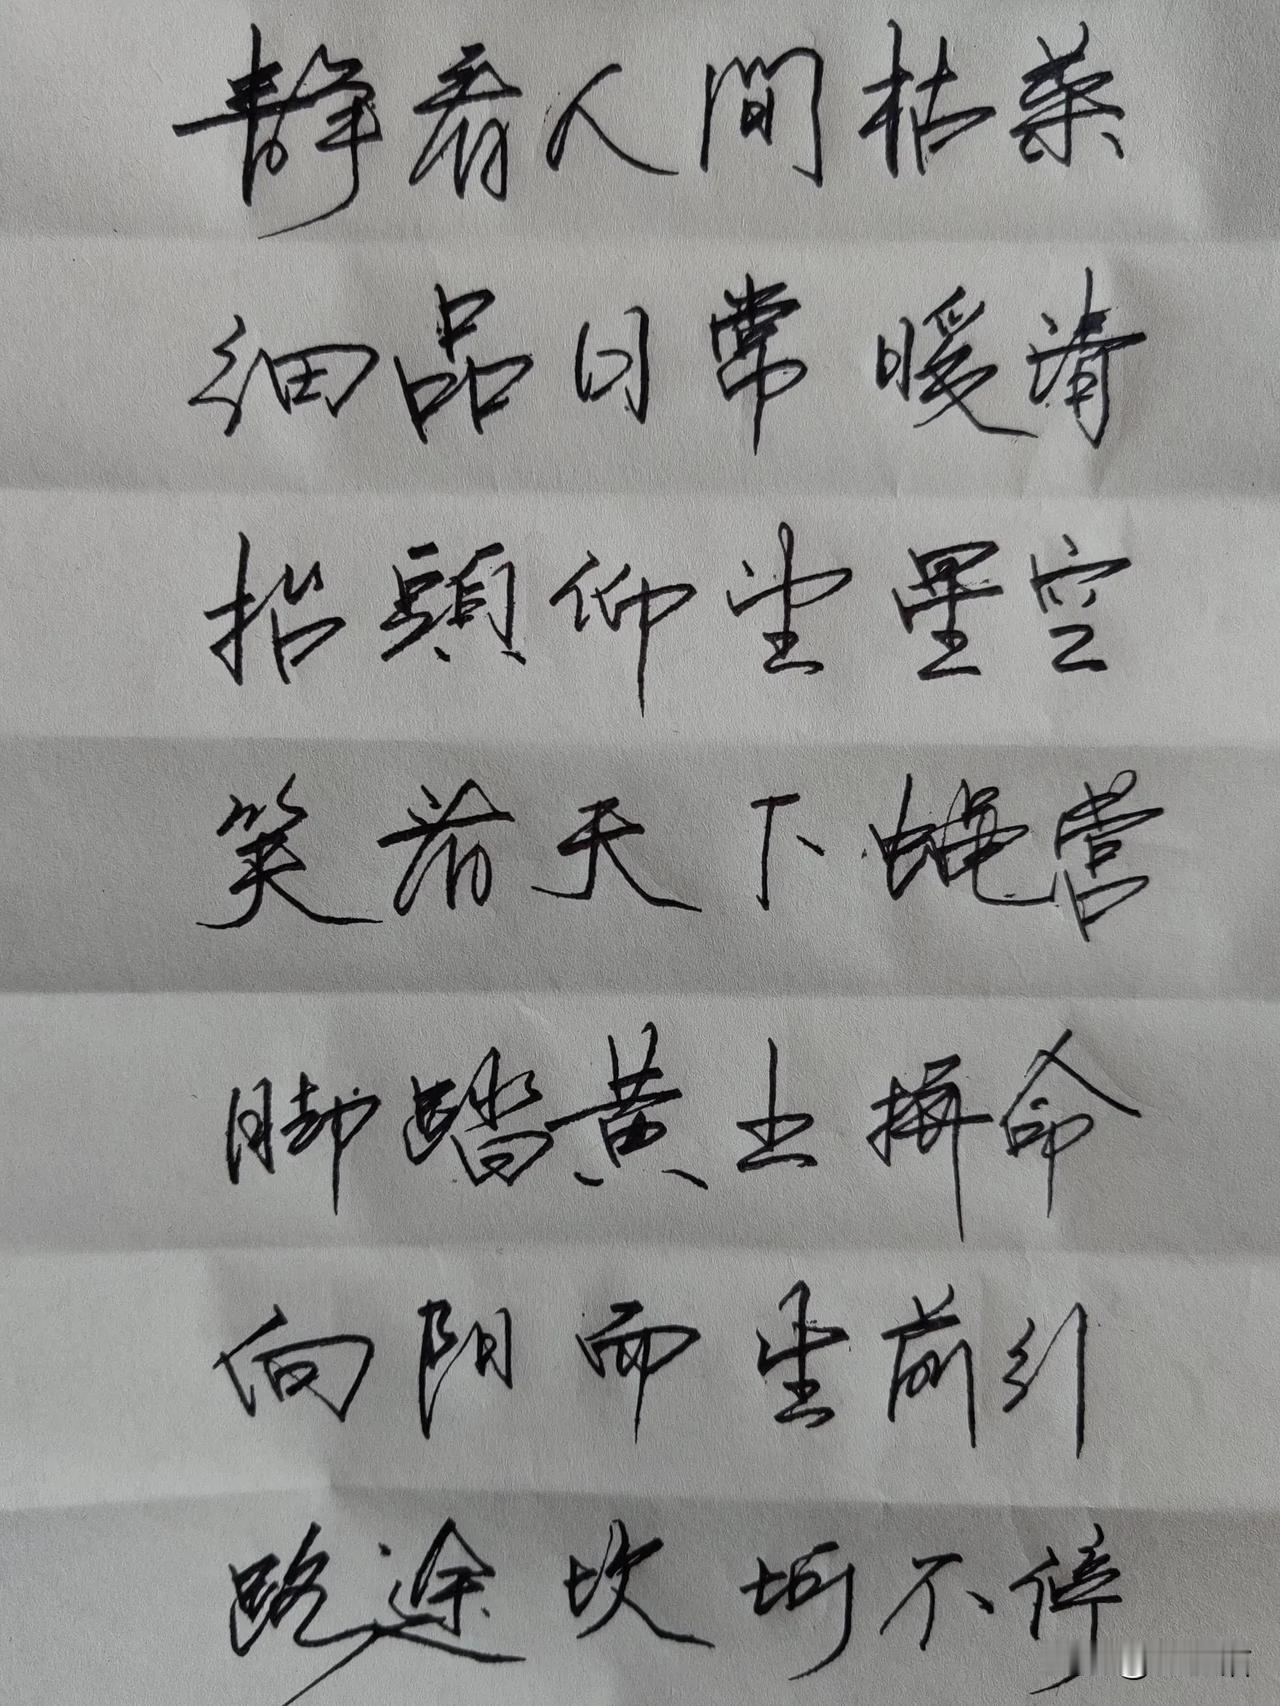 静看人間枯荣
细品日常暖清
抬頭仰望星空
笑看天下蝇营
脚踏黄土拼命
向阳而生前行
路途坎坷不停